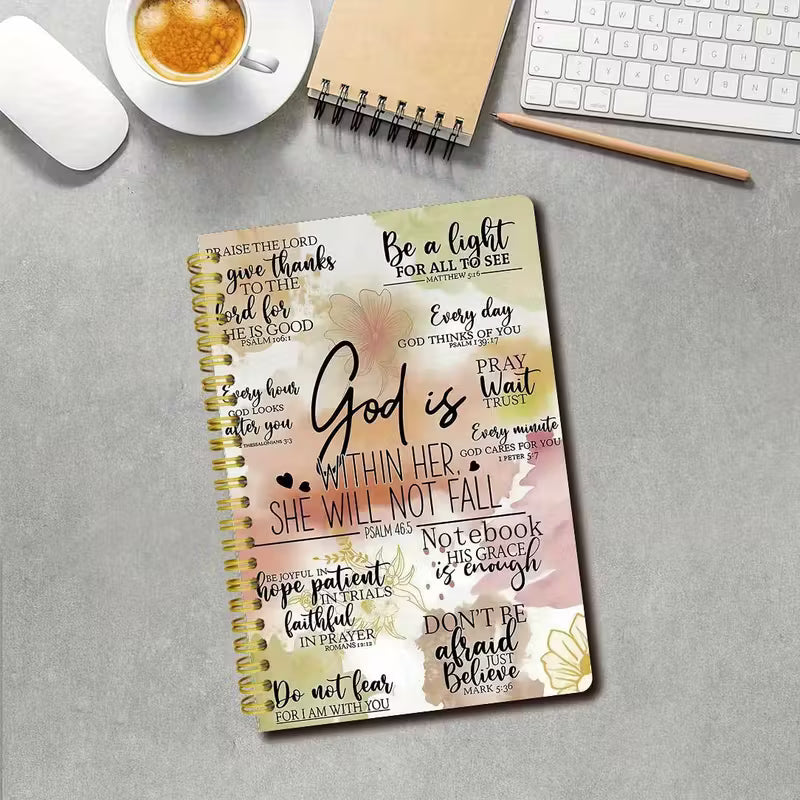 PRAISE THE LORD
give thanks
TO THE
Lord for
HE IS GOOD
PSALM 106:1
Be a light
FOR ALL TO SEE
MATTHEW 5:16
Every day
GOD THINKS OF YOU
PSALM 139:17
PRAY
Wait
TRUST
Every hour
GOD LOOKS
after you
2 THESSALONIANS 3:3
God is
WITHIN HER,
SHE WILL NOT FALL
PSALM 46:5
Every minute
GOD CARES FOR YOU
1 PETER 5:7
Notebook
HIS GRACE
is enough
BE JOYFUL IN
hope patient
IN TRIALS
faithful
IN PRAYER
ROMANS 12:12
DON'T BE
afraid
JUST
Believe
MARK 5:36
Do not fear
FOR I AM WITH YOU